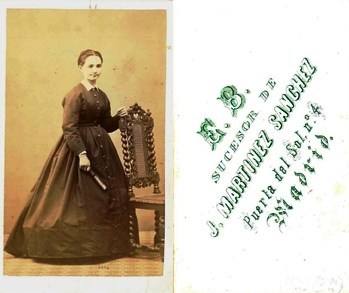 E. B.
SUCESOR DE
J. MARTINEZ SANCHEZ
Puerta del Sol, nº 4
Madrid.